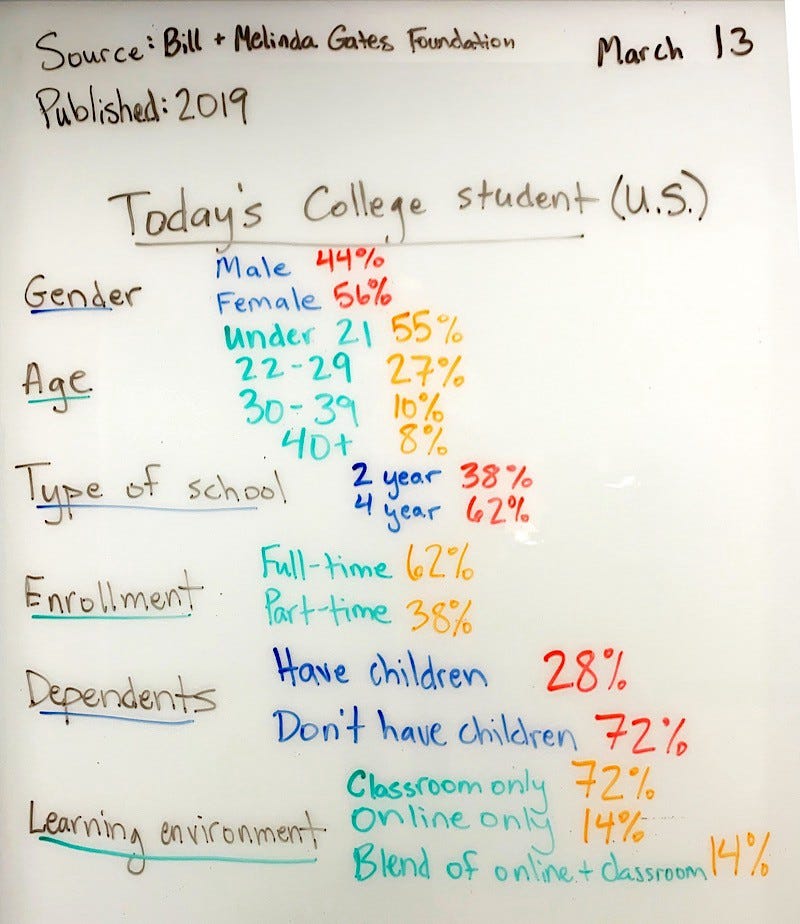 Source: Bill + Melinda Gates Foundation March 13
Published: 2019
Today's College student (U.S.)
Gender
Male 44%
Female 56%
Age
Under 21 55%
22-29 27%
30-39 10%
40+ 8%
Type of school
2 year 38%
4 year 62%
Enrollment
Full-time 62%
Part-time 38%
Dependents
Have children 28%
Don't have children 72%
Learning environment
Classroom only 72%
Online only 14%
Blend of online + classroom 14%